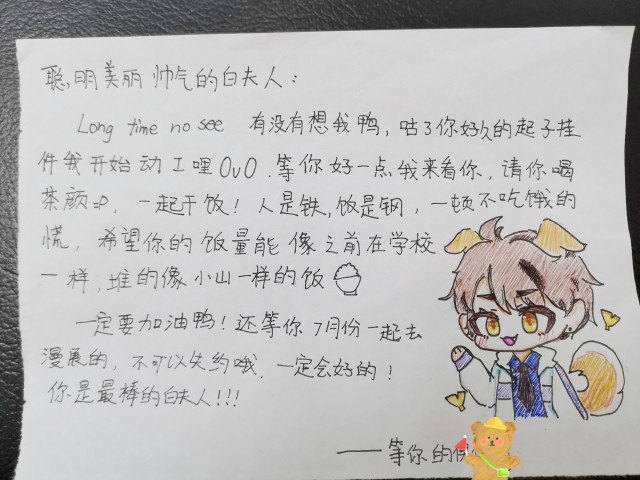 聪明美丽帅气的白夫人：
Long time no see 有没有想我鸭，咕了你好久的起子挂
件我开始动工哩OvO.等你好一点我来看你，请你喝
茶颜=P，一起干饭！人是铁，饭是钢，一顿不吃饿的
慌，希望你的饭量能像之前在学校
一样，堆的像小山一样的饭
一定要加油鸭！还等你7月份一起去
漫展的，不可以失约哦.一定会好的！
你是最棒的白夫人!!!
——等你的